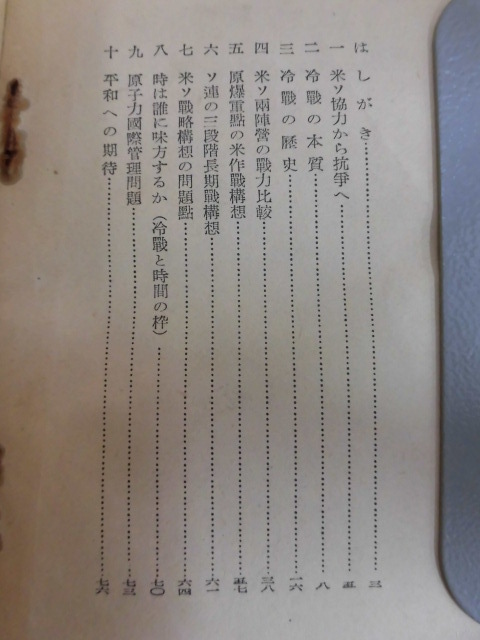 はしがき……………………三
一 米ソ協力から抗爭へ……………………五
二 冷戰の本質……………………八
三 冷戰の歷史……………………一六
四 米ソ兩陣營の戰力比較……………………三八
五 原爆重點の米作戰構想……………………五七
六 ソ連の三段階長期戰構想……………………六一
七 米ソ戰略構想の問題點……………………六四
八 時は誰に味方するか（冷戰と時間の枠）……………………七〇
九 原子力國際管理問題……………………七三
十 平和への期待……………………七六